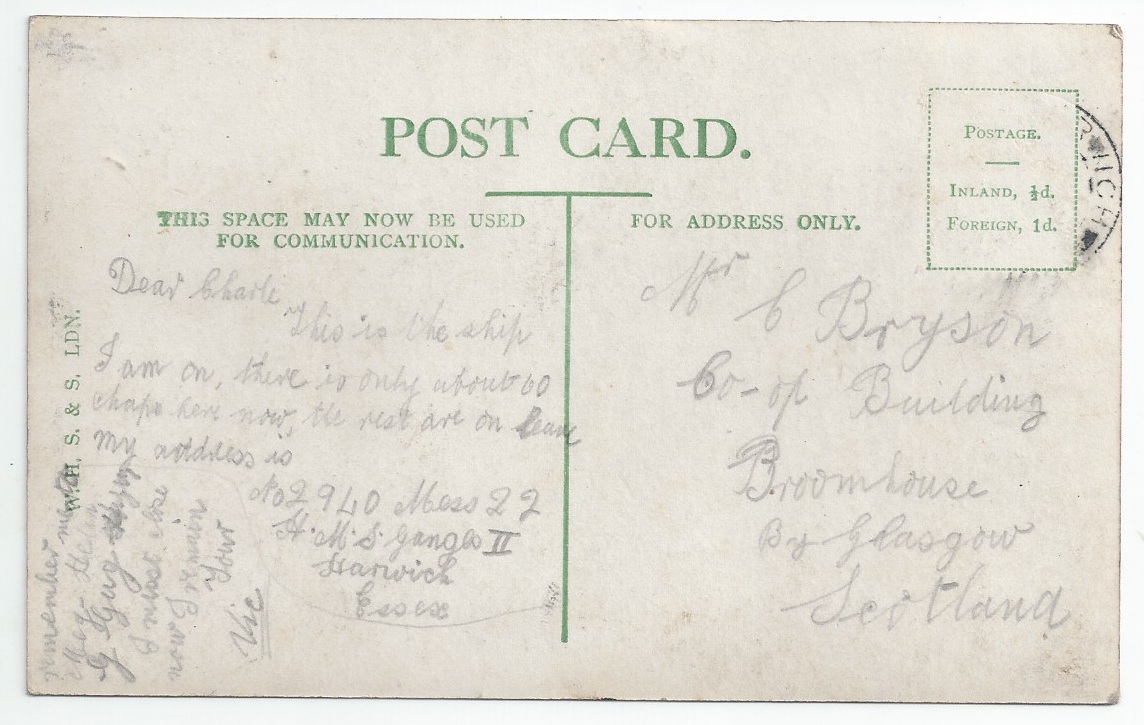 POST CARD.
THIS SPACE MAY NOW BE USED
FOR COMMUNICATION.
FOR ADDRESS ONLY.
POSTAGE.
INLAND, ½d.
FOREIGN, 1d.
W. H. S. & S. LDN.
Dear Charle
This is the ship
I am on, there is only about 60
chaps here now, the rest are on leave
my address is
No 2940 Mess 22
H. M. S. Ganges II
Harwich
Essex
remember me to
Meg
I must close
now
Your
Vic
Mr C Bryson
Co-op Building
Broomhouse
By Glasgow
Scotland